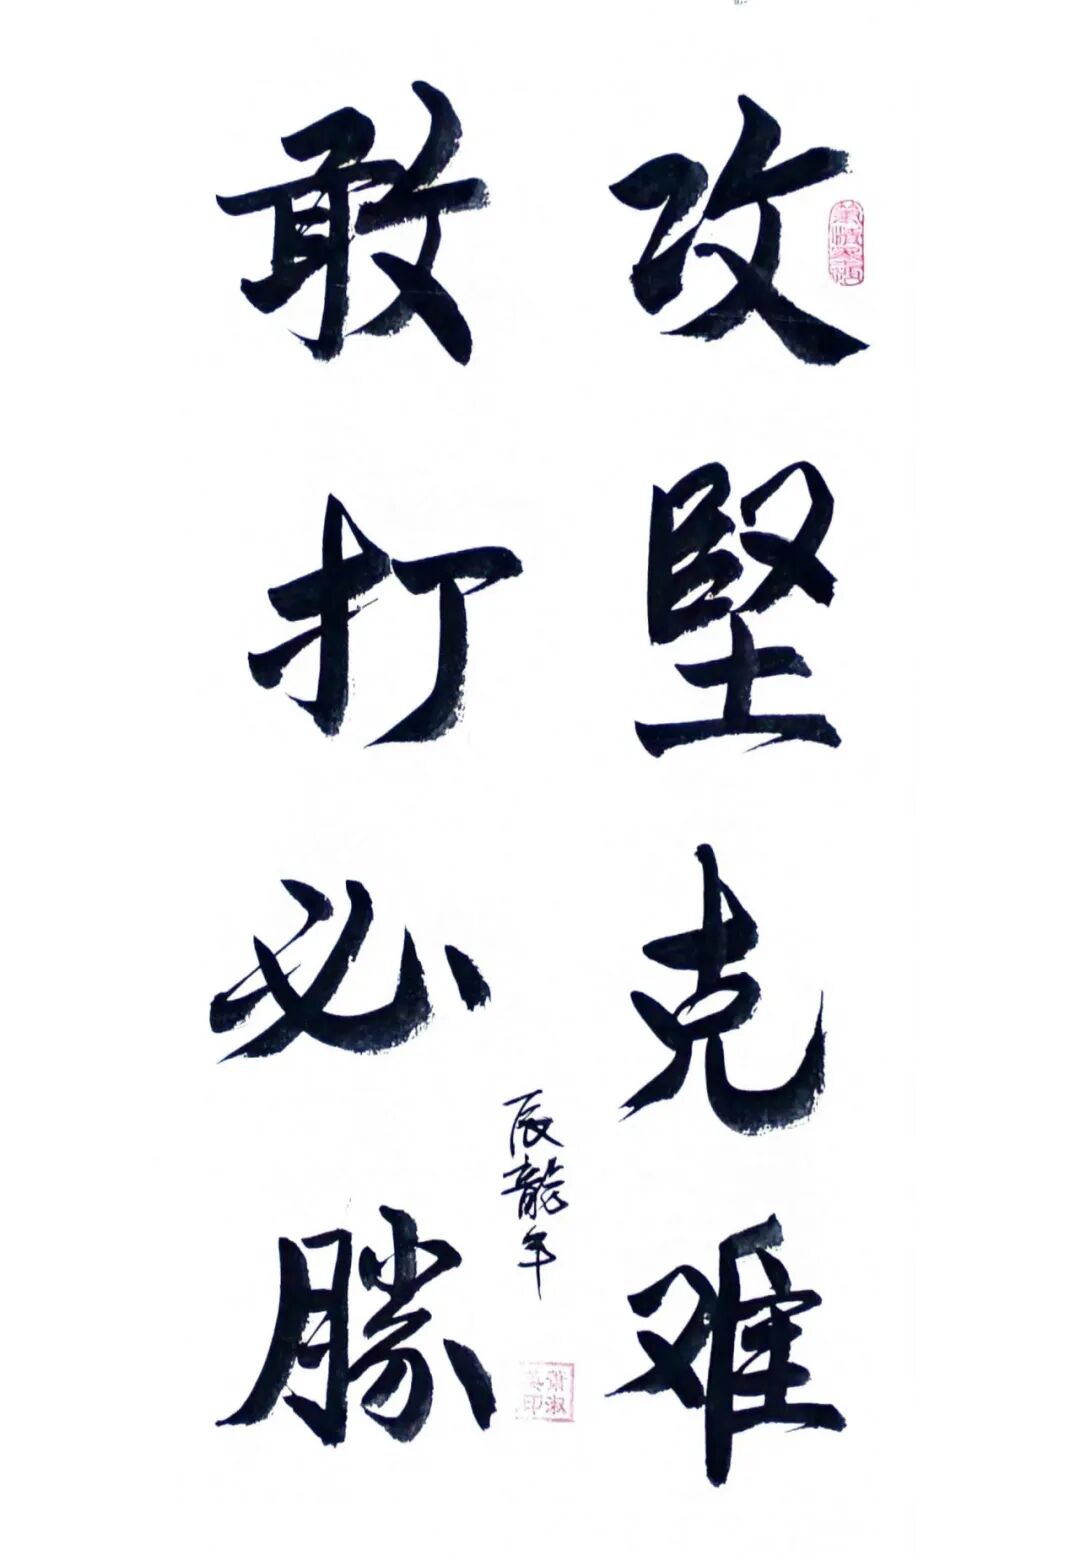 攻堅克难
敢打必勝
辰龍年